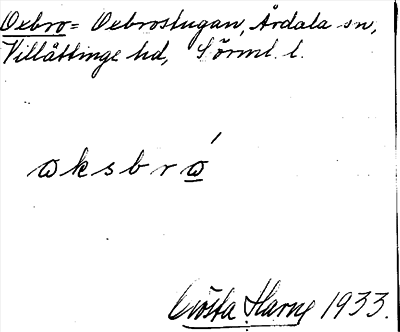 Oxbro = Oxbrostugan, Årdala sn,
Villåttinge hd, Sörml. l.
oksbro̲´
Gösta Harne 1933.